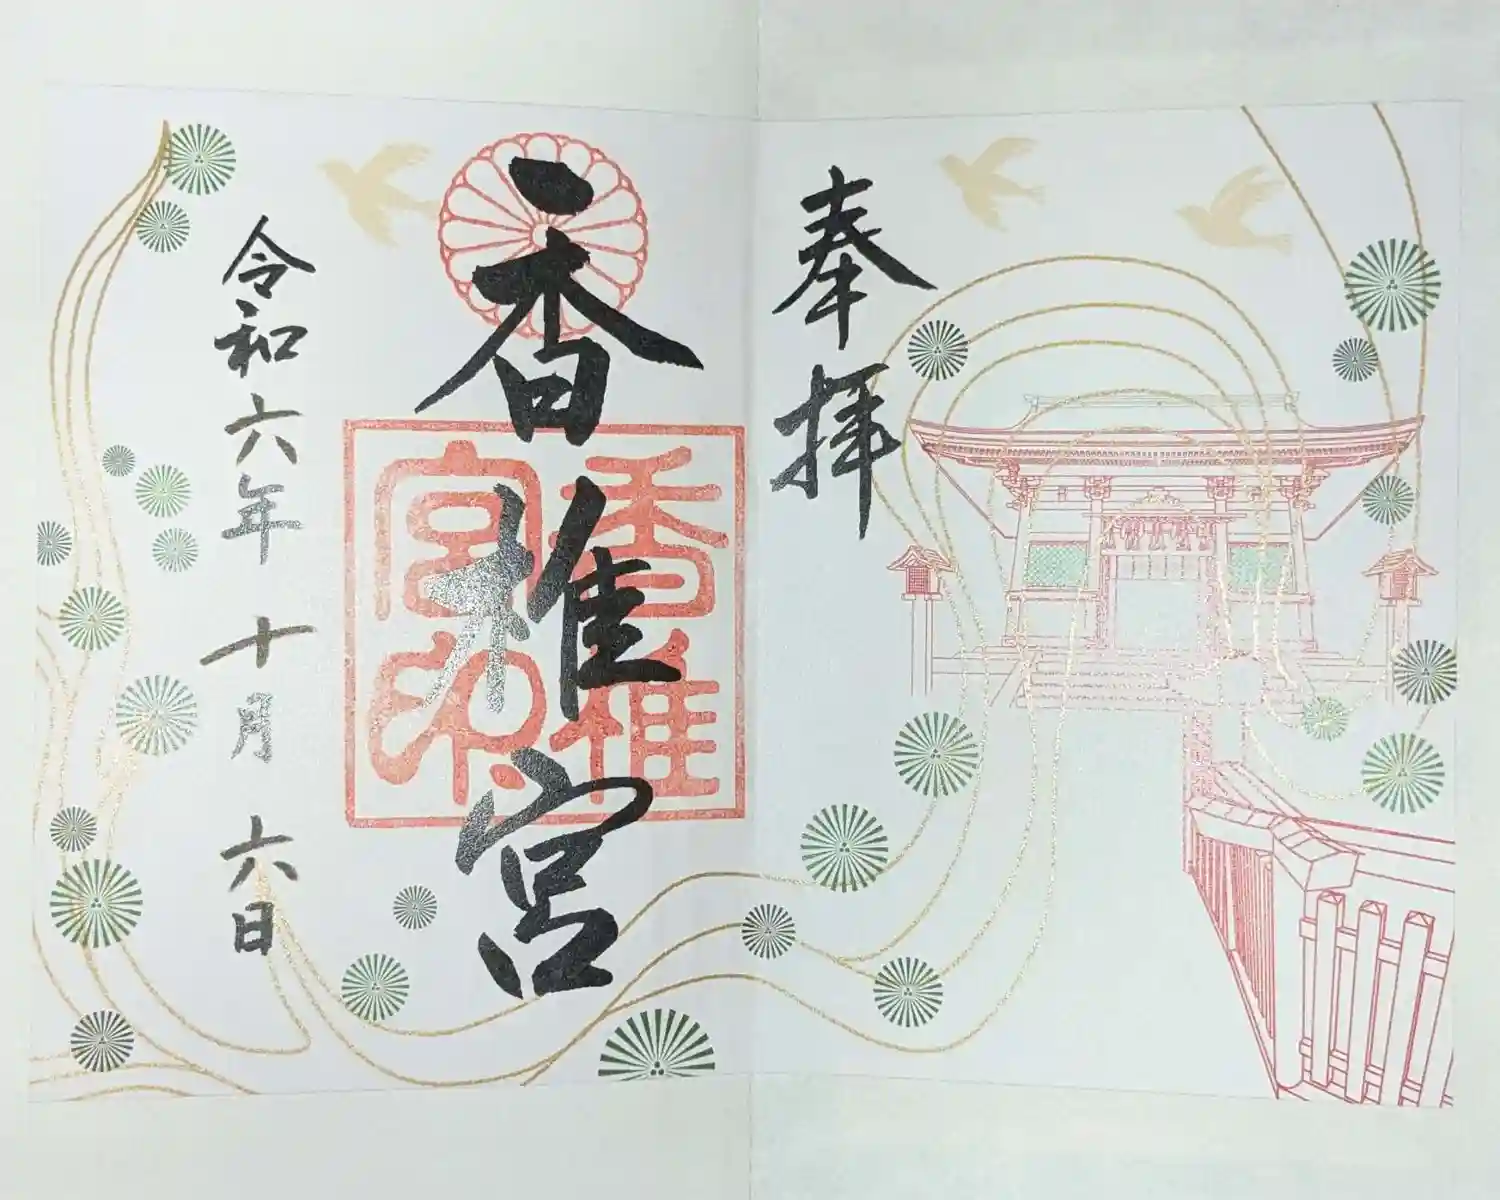 奉拝
香椎宮
香椎宮印
令和六年十月六日